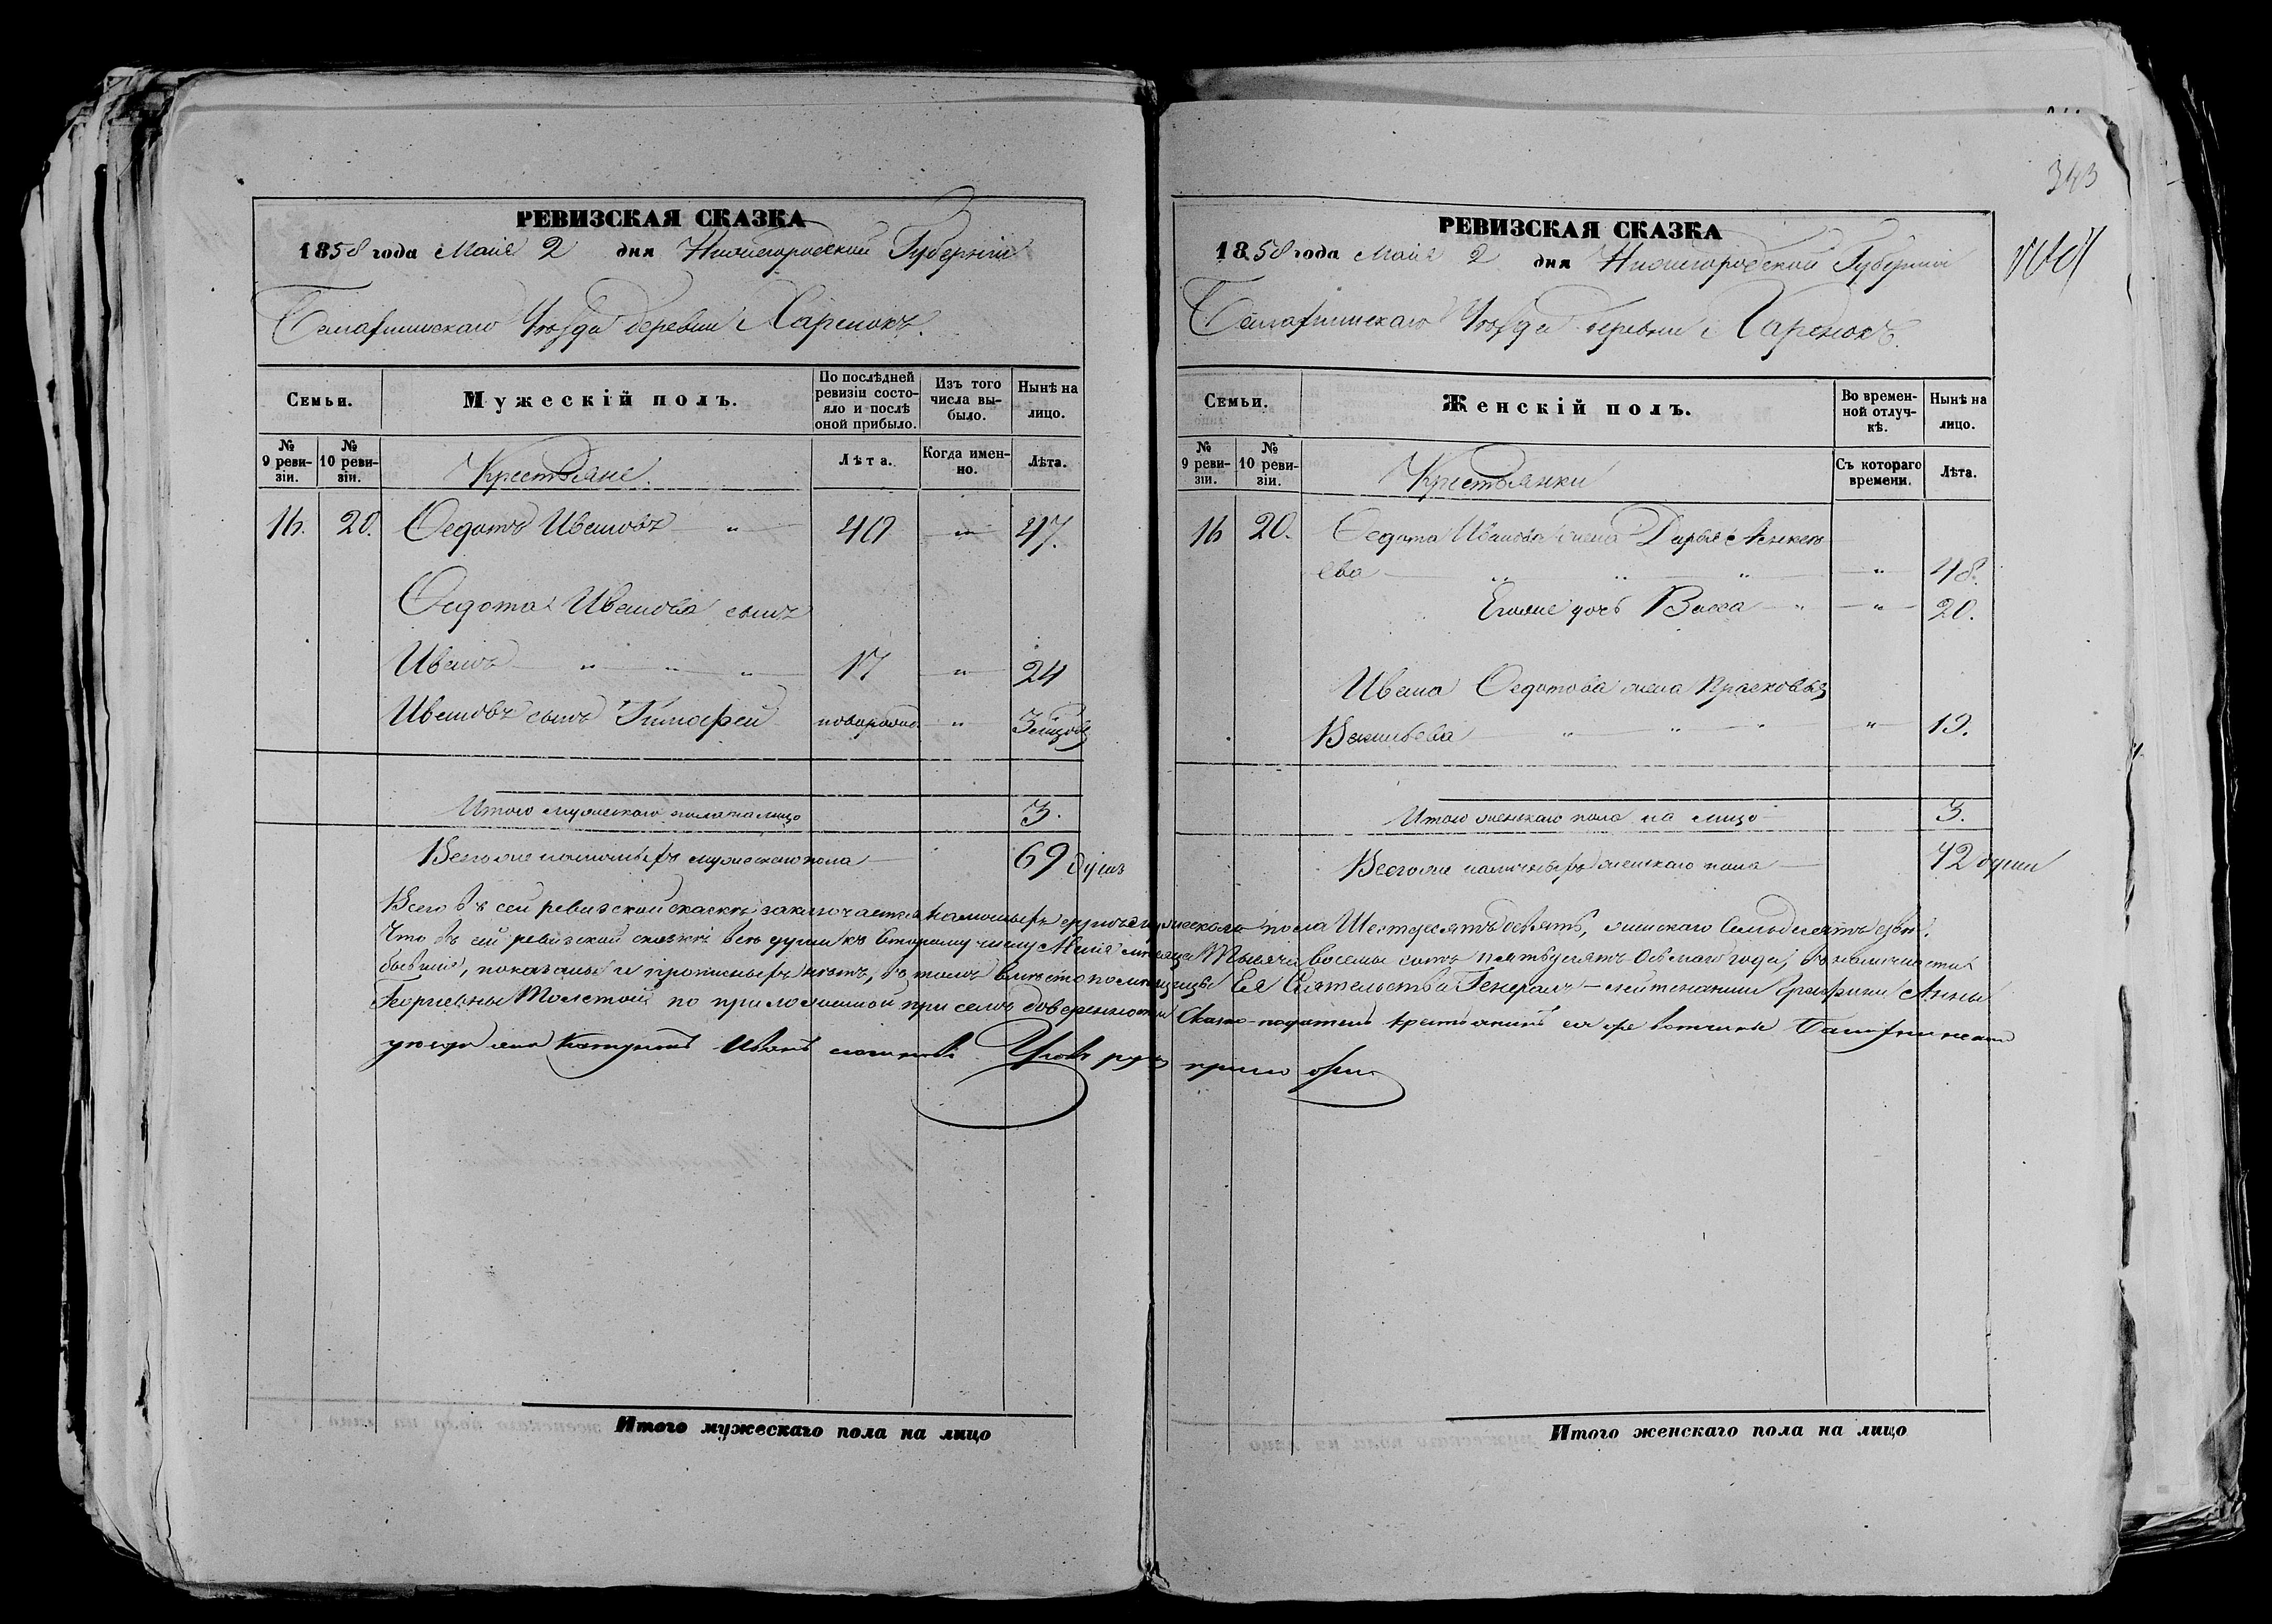 РЕВИЗСКАЯ СКАЗКА
1858 года Маія 2 дня Нижегородской Губерніи
Балахнинскаго Уѣзда деревни Харенокъ.
Семьи.
Мужескій полъ.
По послѣдней ревизіи состояло и послѣ оной прибыло.
Изъ того числа выбыло.
Нынѣ на лицо.
№ 9 ревизіи.
№ 10 ревизіи.
Крестьяне.
Лѣта.
Когда именно.
Лѣта.
16. 20. Ѳедотъ Ивановъ " 40 " 47.
Ѳедота Иванова сынъ
Иванъ " " " 17 " 24
Ивановъ сынъ Тимофей новорожд. " 3 мѣсяцовъ
Итого мужескаго пола на лицо 3.
Всего же наличныхъ мужескаго пола 69 душъ
РЕВИЗСКАЯ СКАЗКА
1858 года Маія 2 дня Нижегородской Губерніи
Балахнинскаго Уѣзда деревни Харенокъ.
343
Семьи.
Женскій полъ.
Во временной отлучкѣ.
Нынѣ на лицо.
№ 9 ревизіи.
№ 10 ревизіи.
Крестьянки
Съ котораго времени.
Лѣта.
16 20. Ѳедота Иванова жена Дарья
ева " " " " 48.
Его же дочь Васса " " 20.
Ивана Ѳедотова жена Прасковья
Васильева " " " " 19.
Итого женскаго пола на лицо 3.
Всего же наличныхъ женскаго пола 72 души
Всего въ сей ревизской сказкѣ заключается наличныхъ душъ мужескаго пола Шестьдесятъ девять, женскаго Семьдесятъ двѣ.
Что въ сей ревизской сказкѣ всѣ души къ второму числу Маія мѣсяца Тысяча восемь сотъ пятьдесятъ Осьмаго года, въ наличности
бывшія, показаны и прописныхъ нѣтъ, въ томъ вмѣсто помѣщицы Ея Сіятельства Генералъ-лейтенантши Графини Анны
Георгіевны Толстой по приложенной при семъ довѣренности Сказко-податель крестьянинъ ея же вотчины Балахнинскаго
уѣзда Иванъ руку приложилъ
Итого мужескаго пола на лицо
Итого женскаго пола на лицо